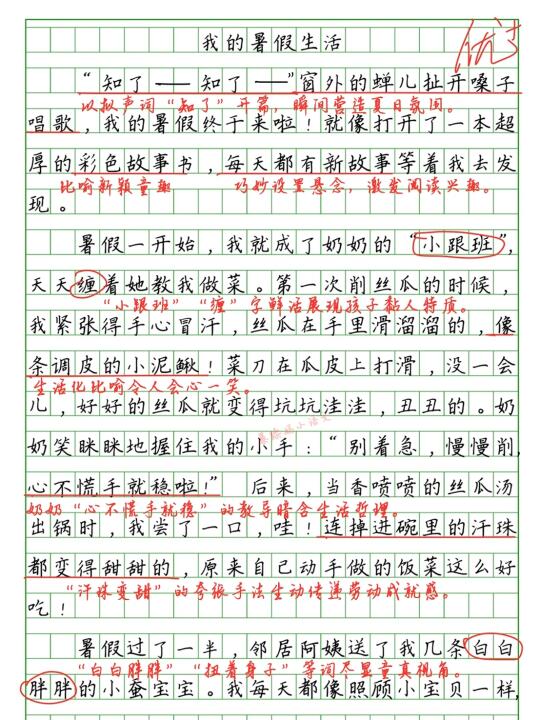 我的暑假生活
优
“知了——知了——”窗外的蝉儿扯开嗓子
以拟声词“知了”开篇，瞬间营造夏日氛围。
唱歌，我的暑假终于来啦！就像打开了一本超
厚的彩色故事书，每天都有新故事等着我去发
比喻新颖童趣 巧妙设置悬念，激发阅读兴趣。
现。
暑假一开始，我就成了奶奶的“小跟班”，
天天缠着她教我做菜。第一次削丝瓜的时候，
“小跟班”“缠”字鲜活展现孩子黏人特质。
我紧张得手心冒汗，丝瓜在手里滑溜溜的，像
条调皮的小泥鳅！菜刀在瓜皮上打滑，没一会
生活化比喻令人会心一笑。
儿，好好的丝瓜就变得坑坑洼洼，丑丑的。奶
奶笑眯眯地握住我的小手：“别着急，慢慢削，
心不慌手就稳啦！”后来，当香喷喷的丝瓜汤
奶奶“心不慌手就稳”的教导暗含生活哲理。
出锅时，我尝了一口，哇！连掉进碗里的汗珠
都变得甜甜的，原来自己动手做的饭菜这么好
“汗珠变甜”的夸张手法生动传递劳动成就感。
吃！
暑假过了一半，邻居阿姨送了我几条白白
“白白胖胖”“扭着身子”等词尽显童真视角。
胖胖的小蚕宝宝。我每天都像照顾小宝贝一样，